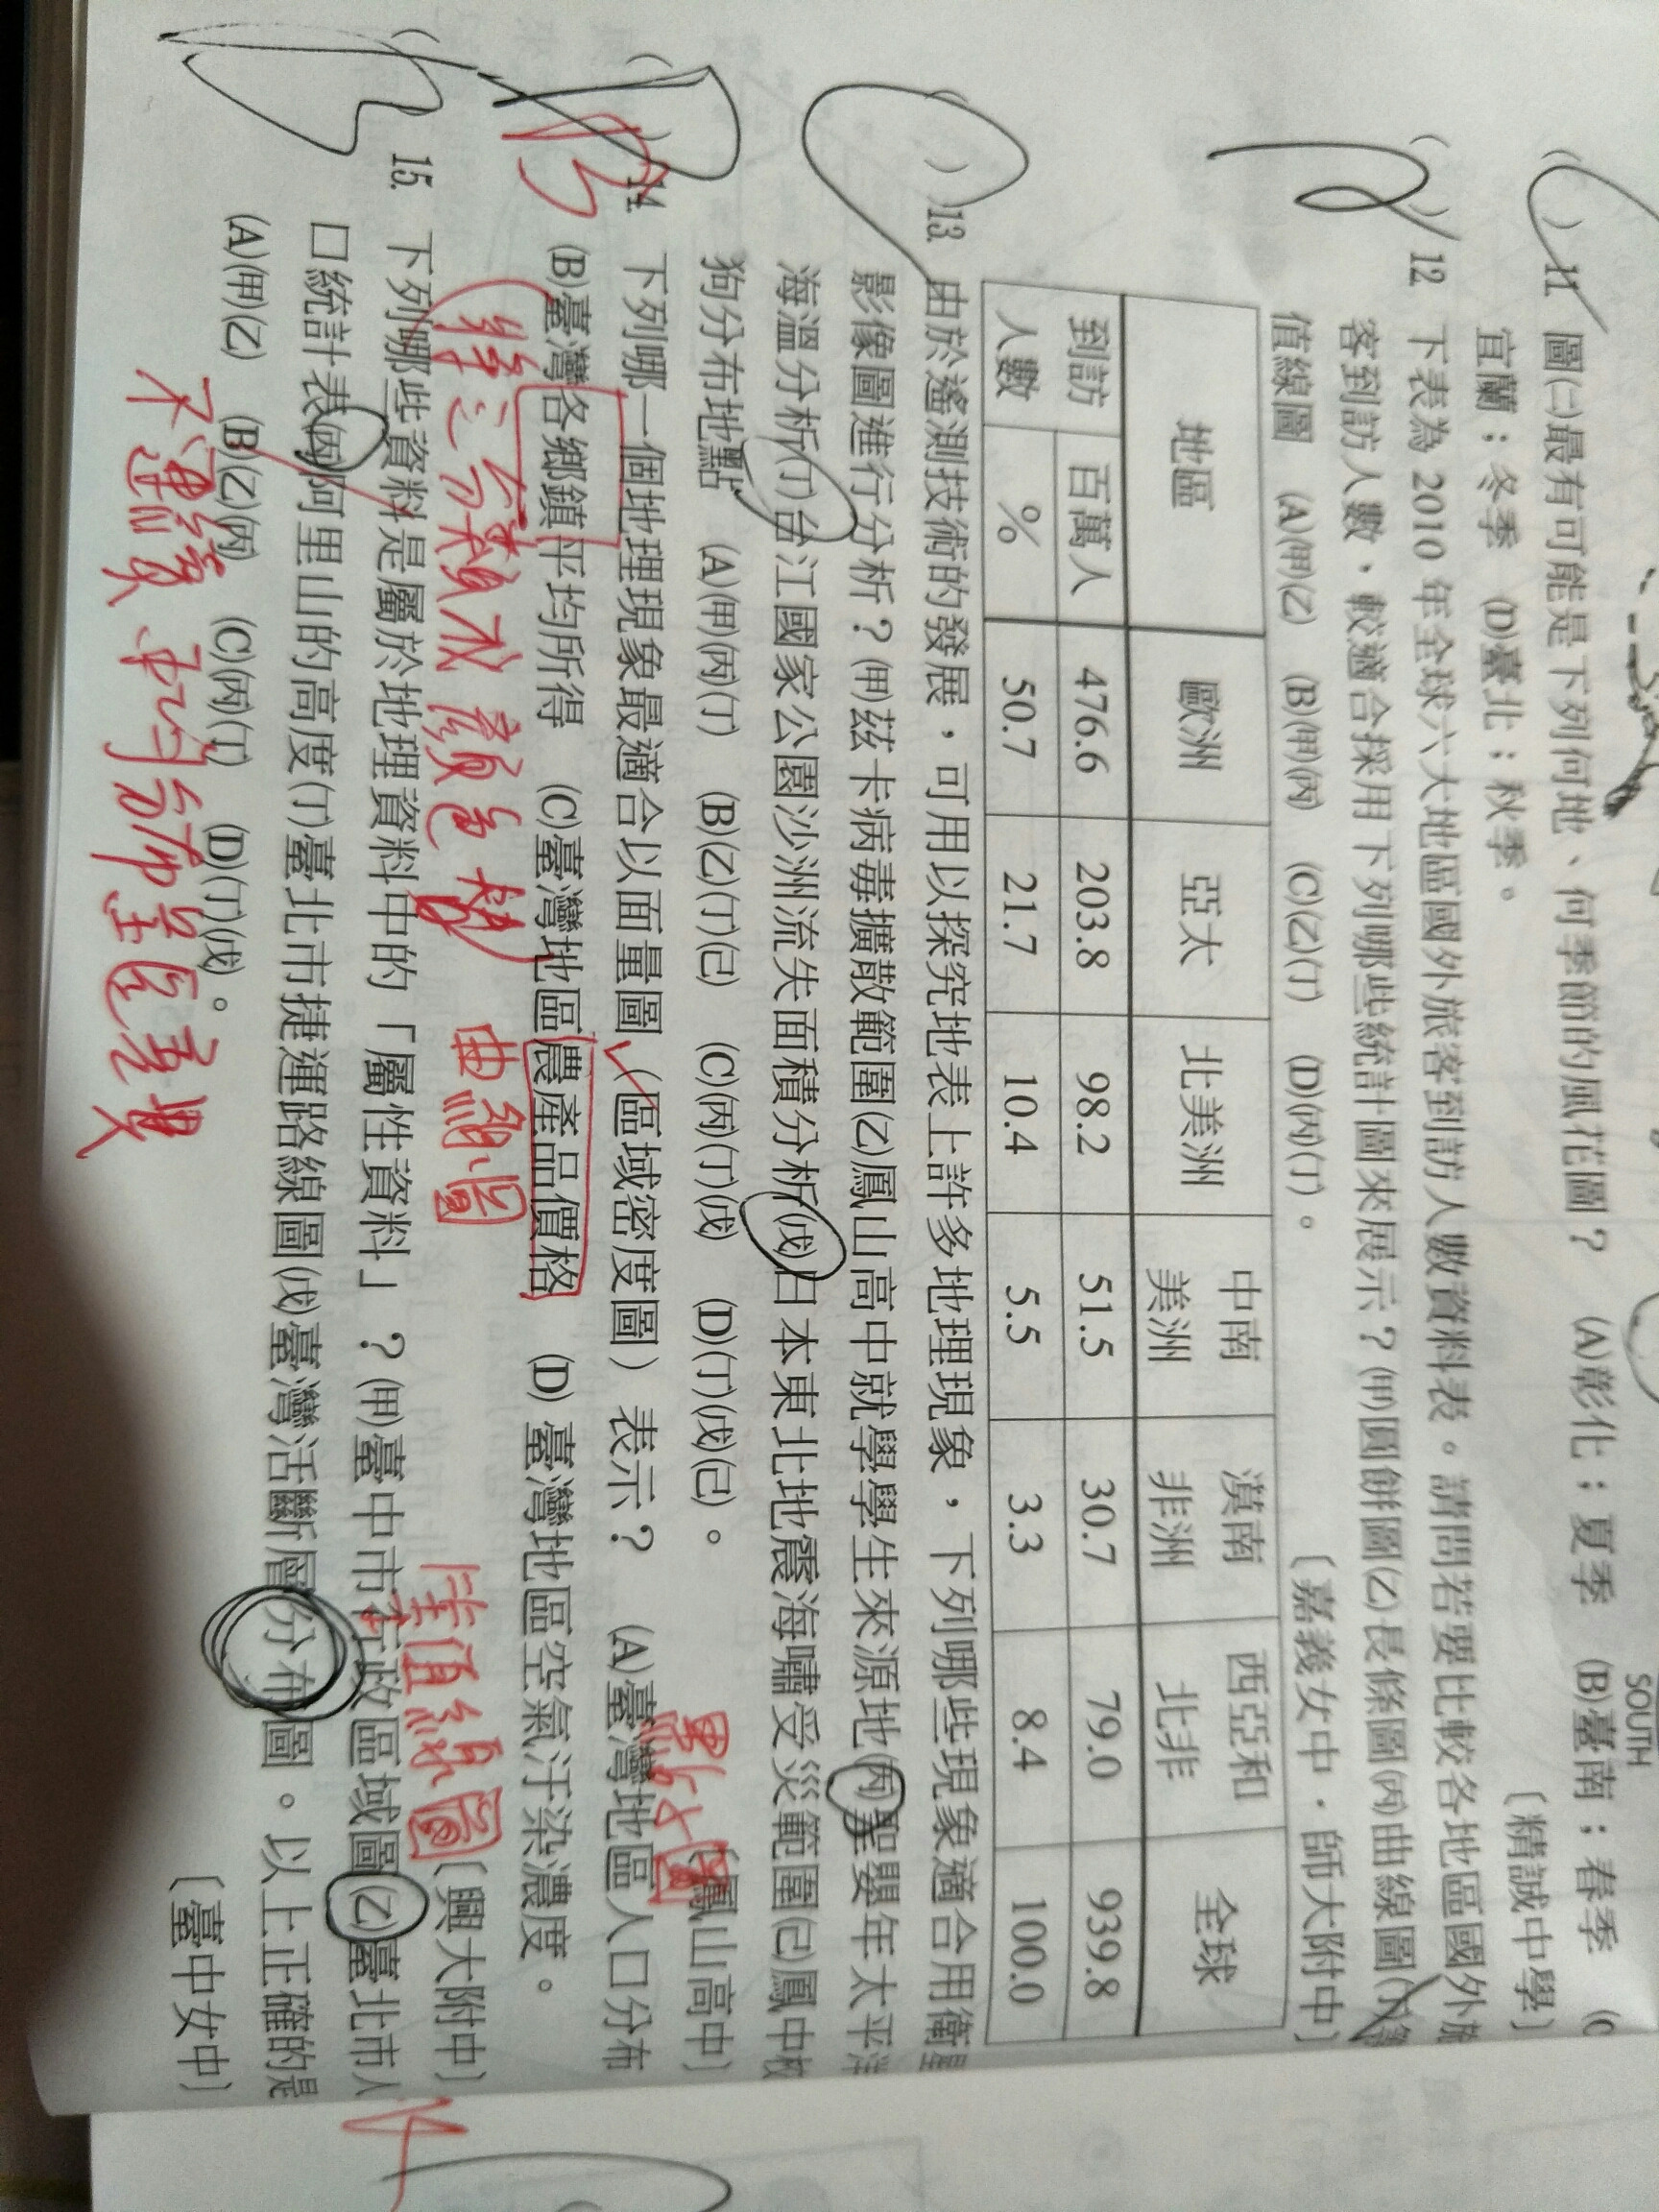 SOUTH
( ) 11. 圖㈡最有可能是下列何地、何季節的風花圖？ (A)彰化；夏季 (B)臺南；春季 (C
宜蘭；冬季 (D)臺北；秋季。 〔精誠中學〕
( ) 12. 下表為 2010 年全球六大地區國外旅客到訪人數資料表。請問若要比較各地區國外旅
客到訪人數，較適合採用下列哪些統計圖來展示？(甲)圓餅圖(乙)長條圖(丙)曲線圖(丁)等
值線圖 (A)(甲)(乙) (B)(甲)(丙) (C)(乙)(丁) (D)(丙)(丁)。 〔嘉義女中．師大附中〕
地區 歐洲 亞太 北美洲 中南美洲 漠南非洲 西亞和北非 全球
到訪 百萬人 476.6 203.8 98.2 51.5 30.7 79.0 939.8
人數 % 50.7 21.7 10.4 5.5 3.3 8.4 100.0
( ) 13. 由於遙測技術的發展，可用以探究地表上許多地理現象，下列哪些現象適合用衛星
影像圖進行分析？(甲)茲卡病毒擴散範圍(乙)鳳山高中就學學生來源地(丙)聖嬰年太平洋
海溫分析(丁)台江國家公園沙洲流失面積分析(戊)日本東北地震海嘯受災範圍(己)鳳中校
狗分布地點 (A)(甲)(丙)(丁) (B)(乙)(丁)(己) (C)(丙)(丁)(戊) (D)(丁)(戊)(己)。 〔鳳山高中〕
點子圖
( ) 14. 下列哪一個地理現象最適合以面量圖（區域密度圖）表示？ (A)臺灣地區人口分布
B
(B)臺灣各鄉鎮平均所得 (C)臺灣地區農產品價格 (D)臺灣地區空氣汙染濃度。
曲線圖 等值線圖 〔興大附中〕
( ) 15. 下列哪些資料是屬於地理資料中的「屬性資料」？(甲)臺中市行政區域圖(乙)臺北市人
口統計表(丙)阿里山的高度(丁)臺北市捷運路線圖(戊)臺灣活斷層分布圖。以上正確的是
(A)(甲)(乙) (B)(乙)(丙) (C)(丙)(丁) (D)(丁)(戊)。 〔臺中女中〕
不連續